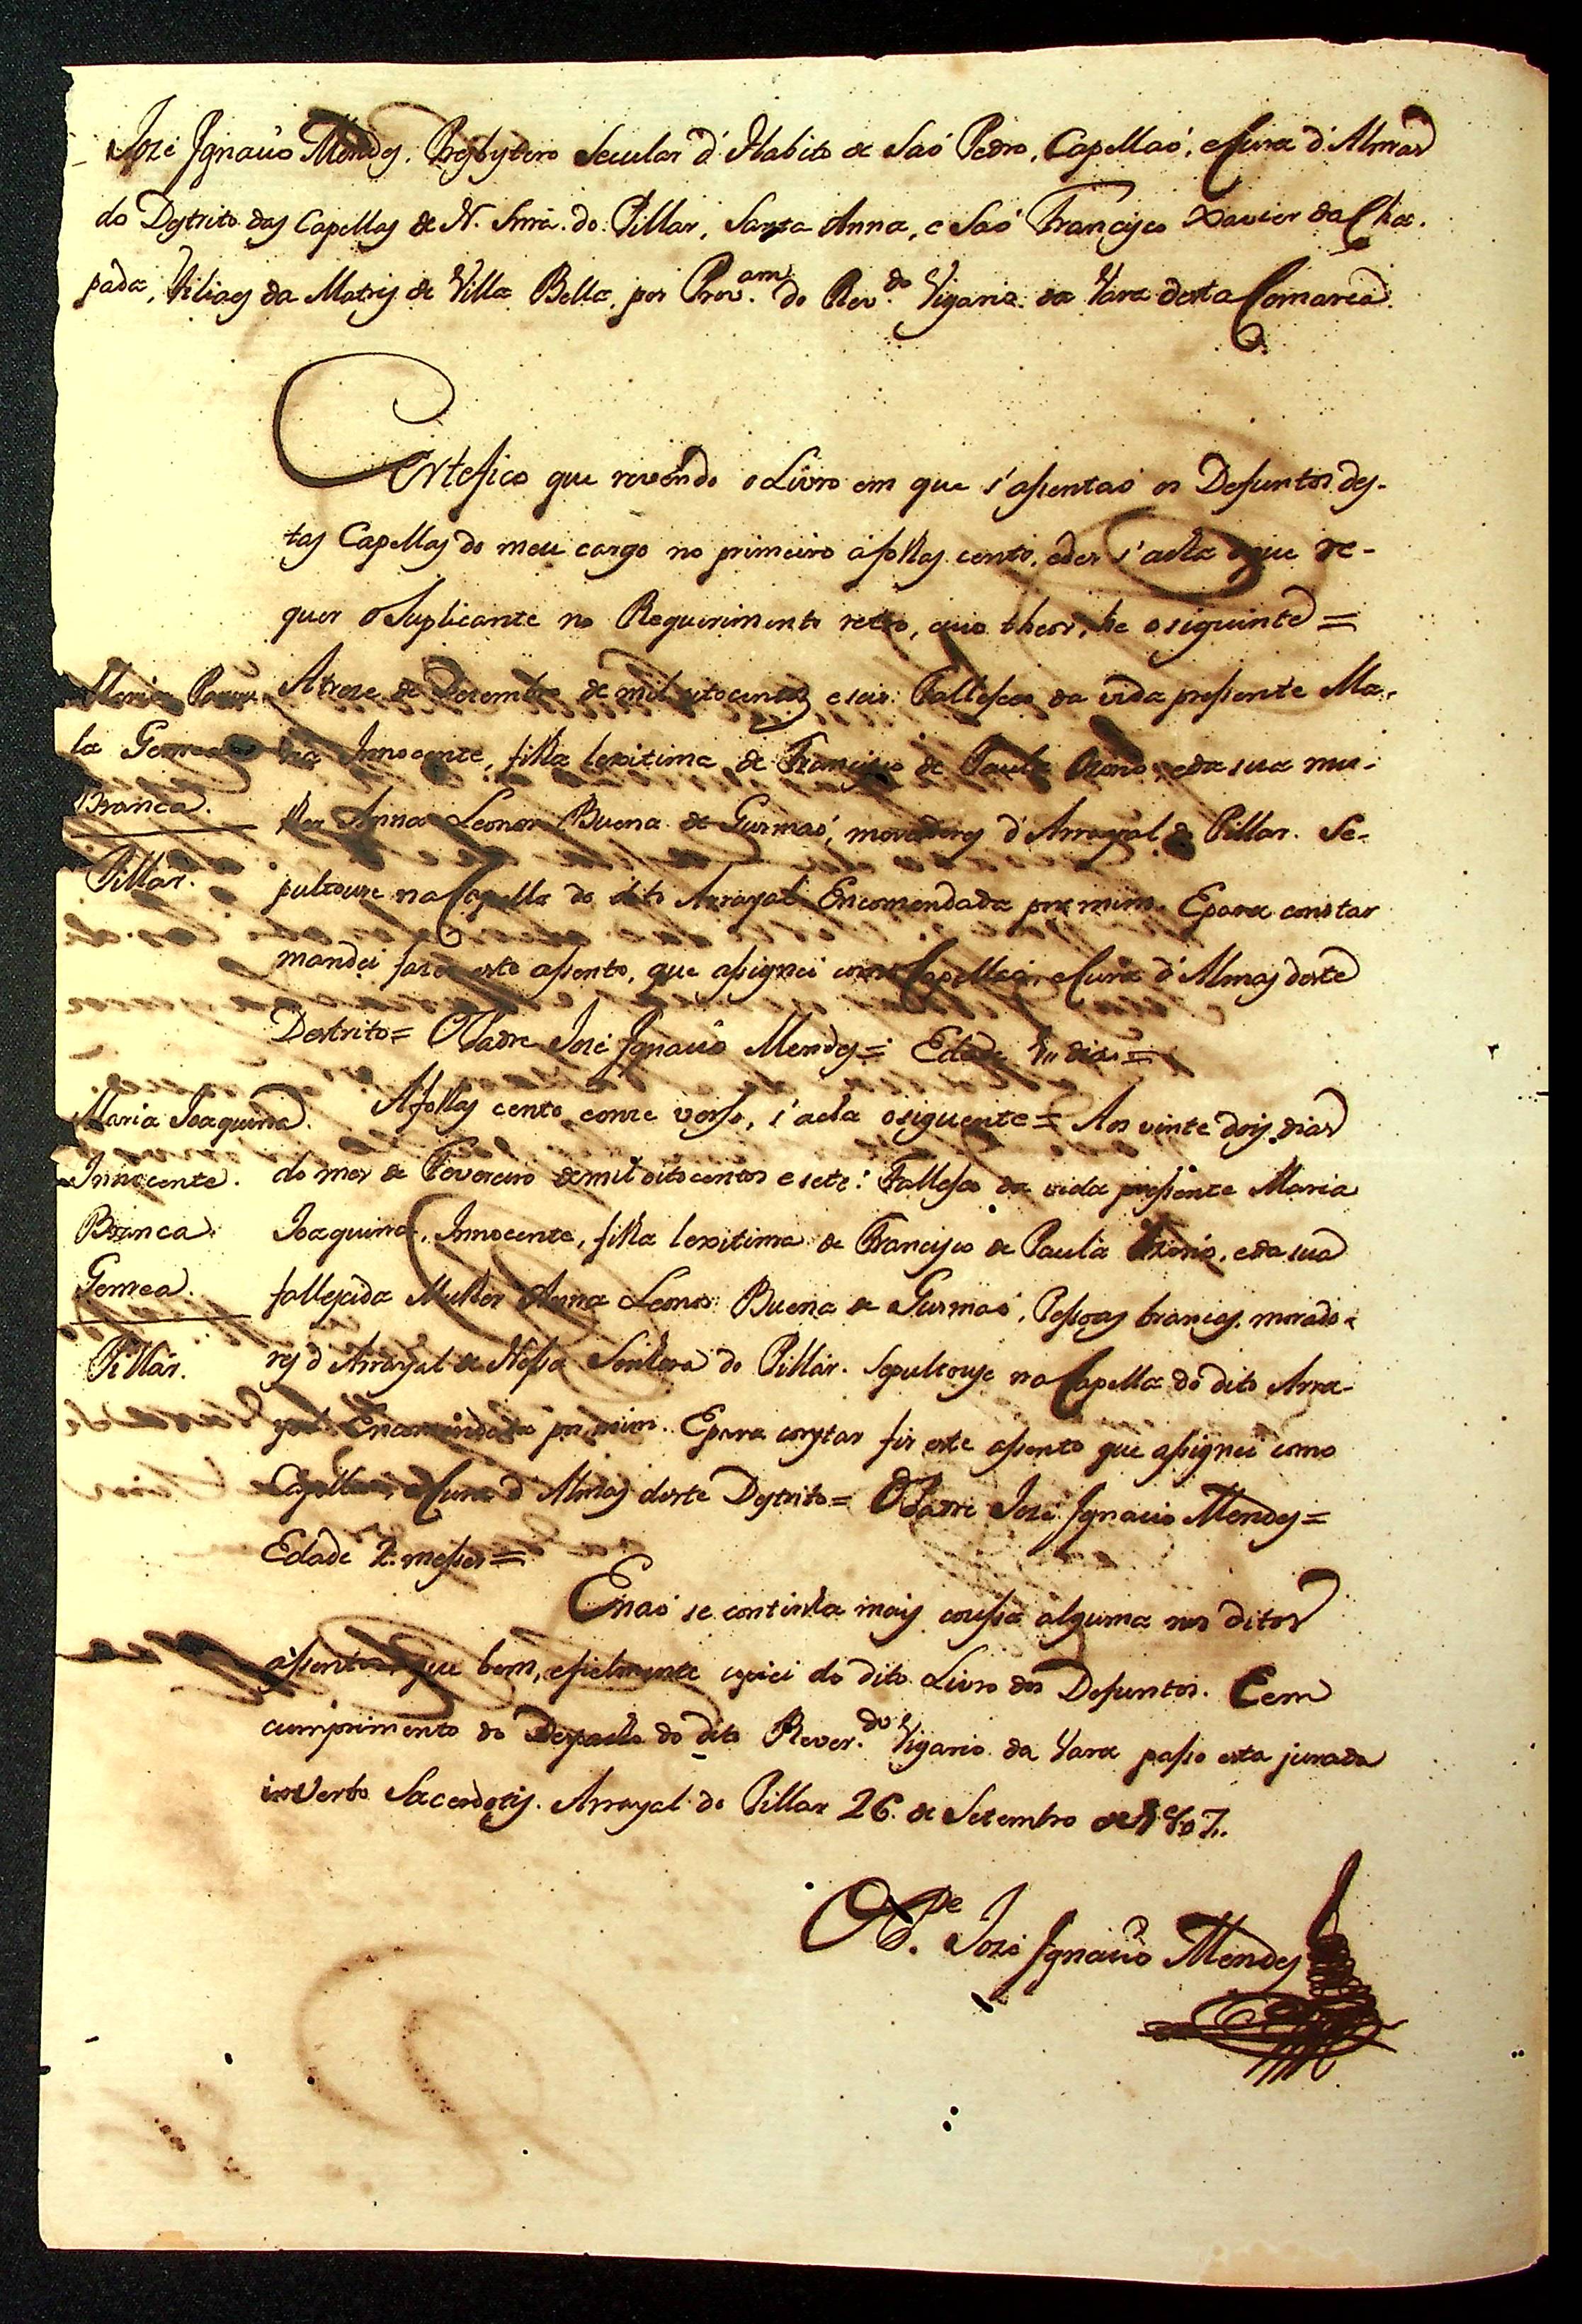 Jozé Ignacio Mendes, Presbytero Secular d'Habito de Saó Pedro, Capellaó, e Cura d'Almas
do Destrito das Capellas de N. Snra. do Pillar, Santa Anna, e Saó Francisco Xavier da Cha-
pada, Filiaes da Matris de Villa Bella, por Prov.am do Rev.do Vigario da Vara desta Comarca.
Certefico que revendo o Livro em que s'assentaó os Defuntos des-
tas Capellas do meu cargo no primeiro afolhas cento, edes s'acha o que re-
quer o Suplicante no Requerimento retro, cujo theor, he o siguinte =
Maria
Atreze de Dezembro de mil oitocentos e seis: Fallesceo da vida pressente Ma-
la Gemea
ria Innocente, filha lexitima de Francisco de Paula e da sua mu-
Branca.
lher Anna Leonor Buena de Gusmaó, moradores d'Arrayal do Pillar. Se-
Pillar.
pultouse na Capella do dito Arrayal Encomendada por mim. Epara constar
mandei fazer este assento, que assignei como Capellaó, e Cura d'Almas deste
Destrito = O Padre Jozé Ignacio Mendes = Edade dia =
Maria Joaquina.
Afolhas cento, e onze verso, s'acha o siguente = Aos vinte dois dias
Innocente.
do mes de Fevereiro de mil oitocentos e sete: Fallesceo da vida pressente Maria
Branca.
Joaquina, Innocente, filha lexitima de Francisco de Paula e da sua
Gemea.
fallescida Mulher Anna Leonor Buena de Gusmaó, Pessoas brancas, morado-
Pillar.
res d'Arrayal de Nossa Senhora do Pillar. Sepultouse na Capella do dito Arra-
yal Encomendada por mim. Epara constar fis este assento que assignei como
Capellaó, e Cura d'Almas deste Destrito = O Padre Jozé Ignacio Mendes =
Edade messes =
Enaó se continha mais coussa alguma nos ditos
assentos que bem, efielmente copiei do dito Livro dos Defuntos. Eem
cumprimento do Despacho do dito Rever.do Vigario da Vara passo esta jurada
in Verbo Sacerdotis. Arrayal do Pillar 26 de Setembro de 1807.
O P.e Jozé Ignacio Mendes